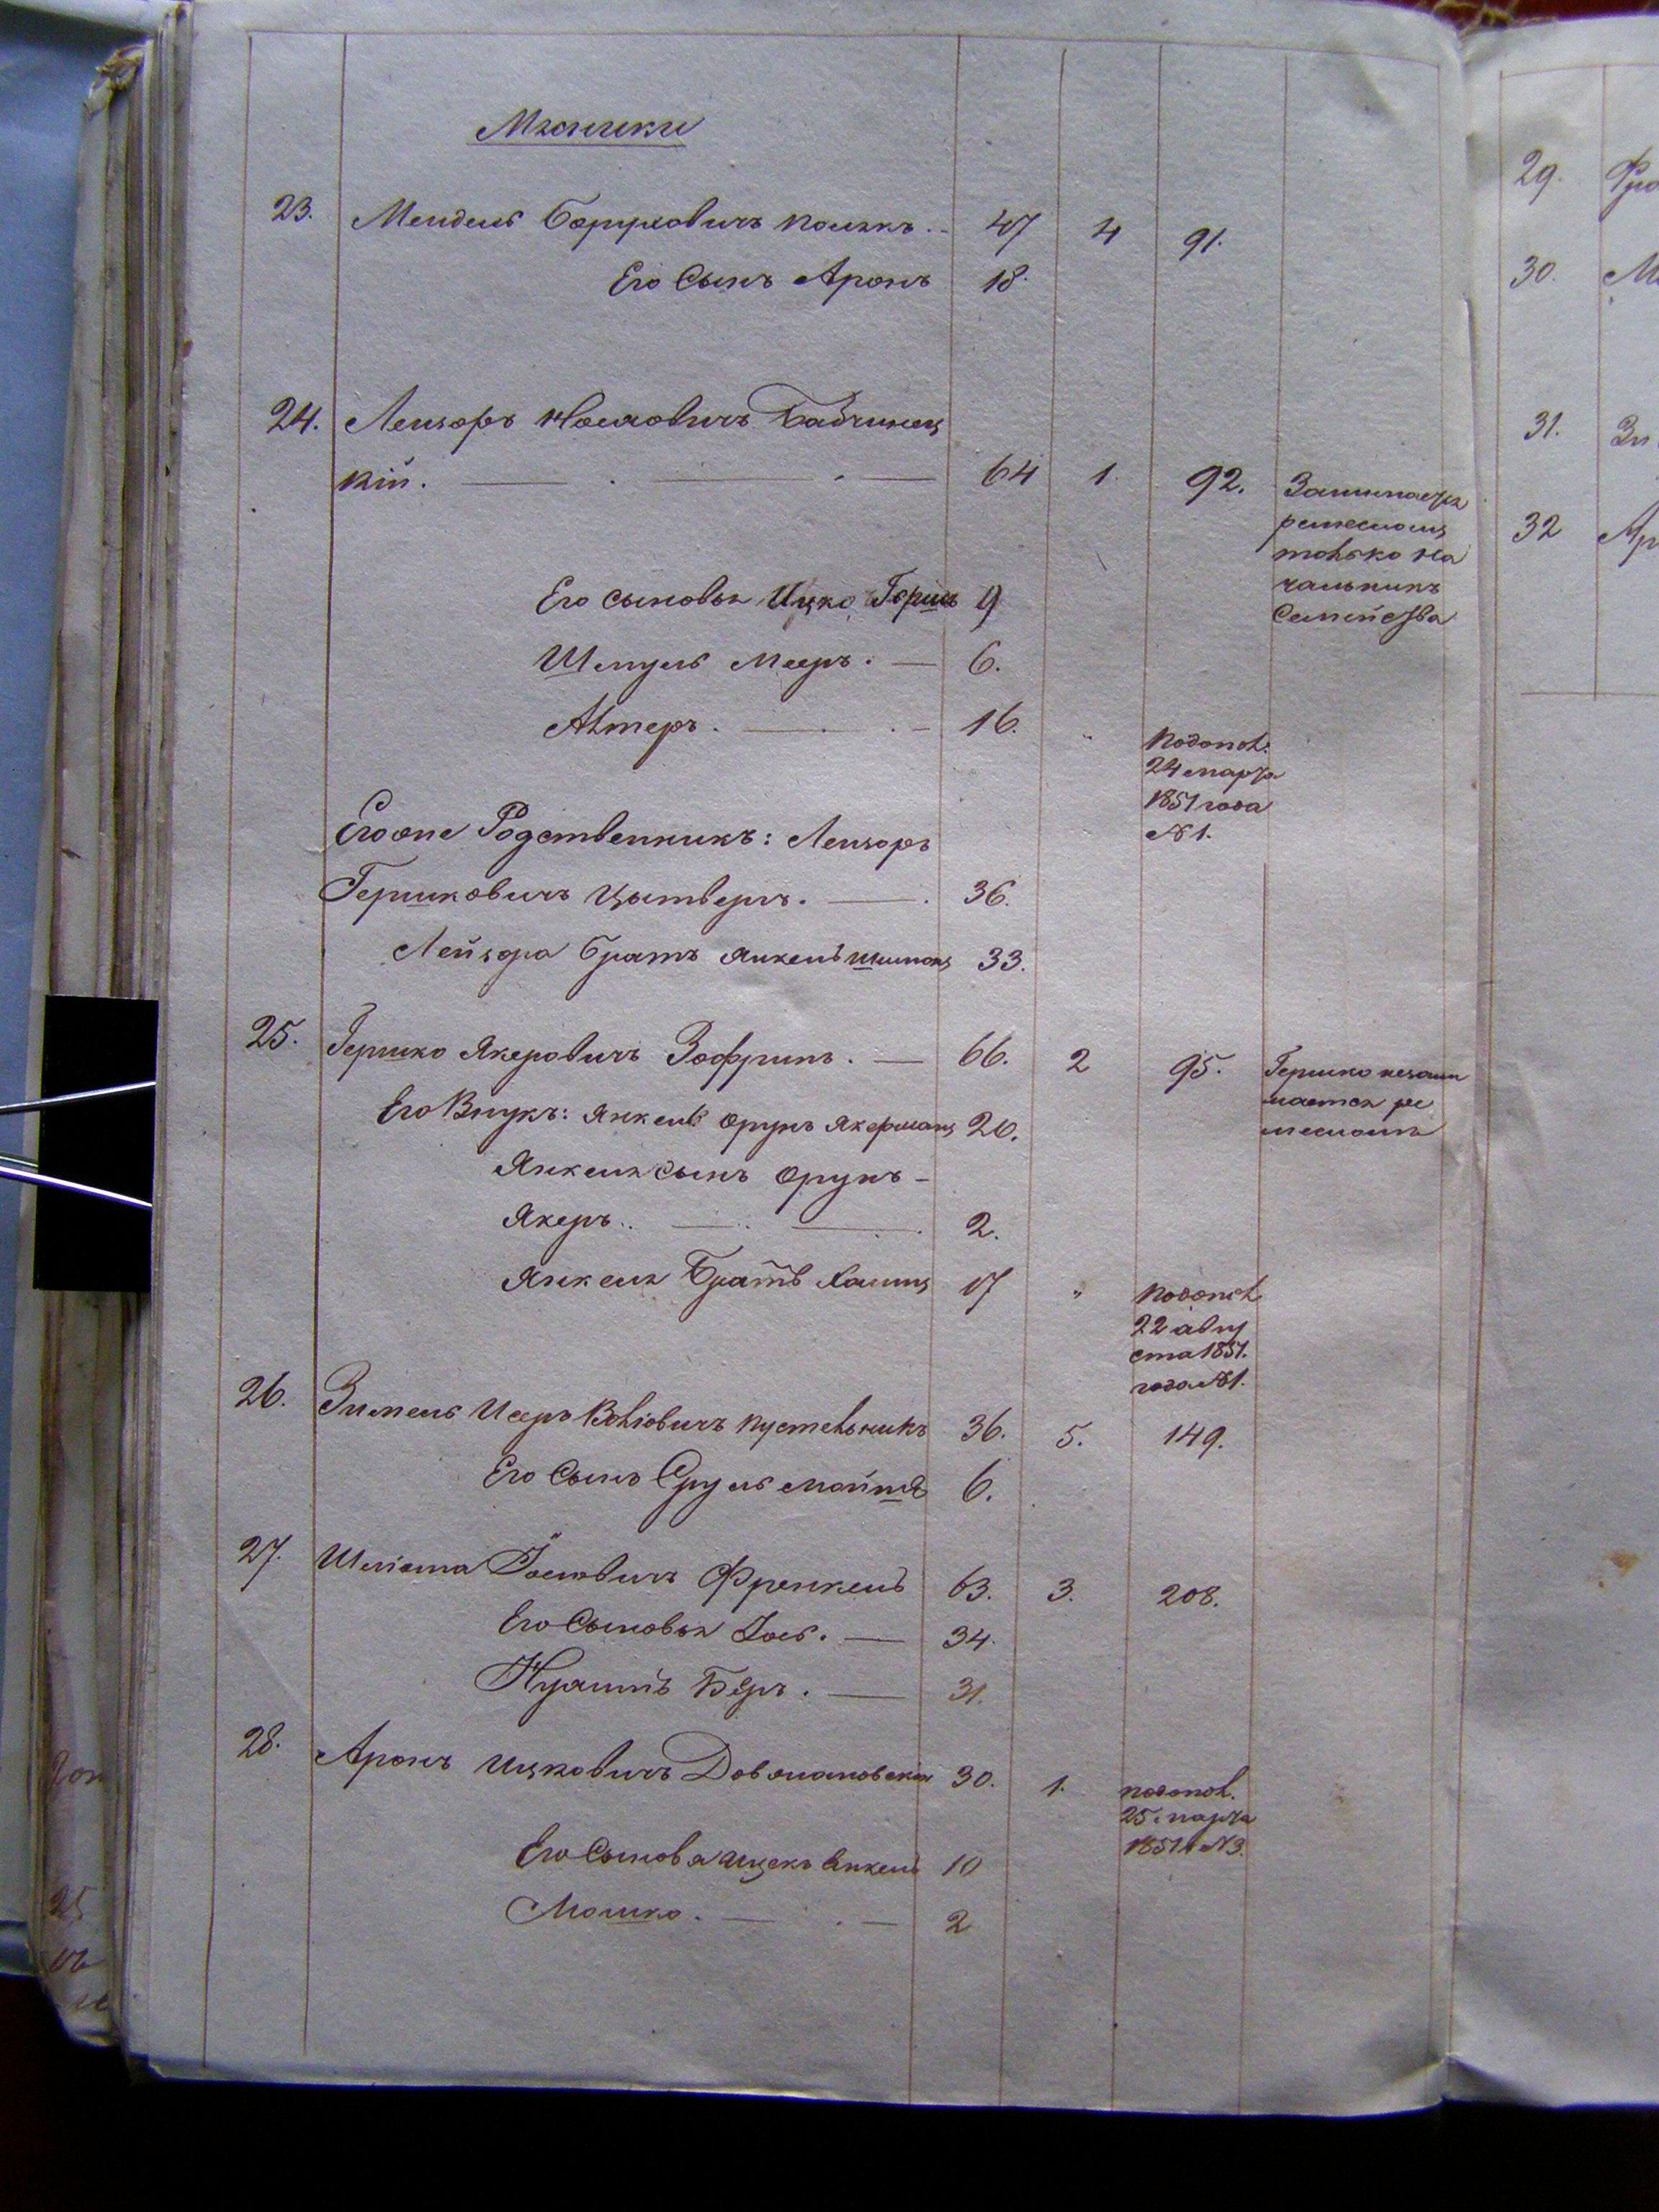 23. Мендель Боруховичъ Полякъ 47 4 91.
Его Сынъ Аронъ 18.
24. Лейзоръ Носиовичъ Бабчинец
кій. 64 1. 92. Занимается
ремесломъ
только на
чальникъ
Семейства
Его сыновья Ицко Горшъ 9
Шмуль Мееръ. 6.
Алтеръ. 16. " Подопол.
24 марта
1851 года
№ 1.
Егоже Родственникъ: Лейзоръ
Гершковичъ 36.
Лейзора братъ Янкель Шимонъ 33.
25. Гершко Якеровичъ Зофринъ. 66. 2 95. Гершко незани
мается ре
месломъ
Его Внукъ: Янкель Орунъ Якерманъ 20.
Янкеля сынъ Орунъ -
Якеръ.. 2.
Янкеля Братъ Хаимъ 17 " Подопол
22 авгу
ста 1851.
года №1.
26. Зимель Исеръ Вольовичъ Пустельникъ 36. 5. 149.
Его Сынъ Сруль Мойше 6.
27. Шліома Іосіовичъ Френкель 63. 3. 208.
Его Сыновья Іось. 34.
Нухимъ Беръ. 31.
28. Аронъ Ицковичъ 30. 1. подопол.
25. марта
1851 №3.
Его Сыновья Ицекъ Янкель 10
Мошко. 2
29.
30.
31.
32